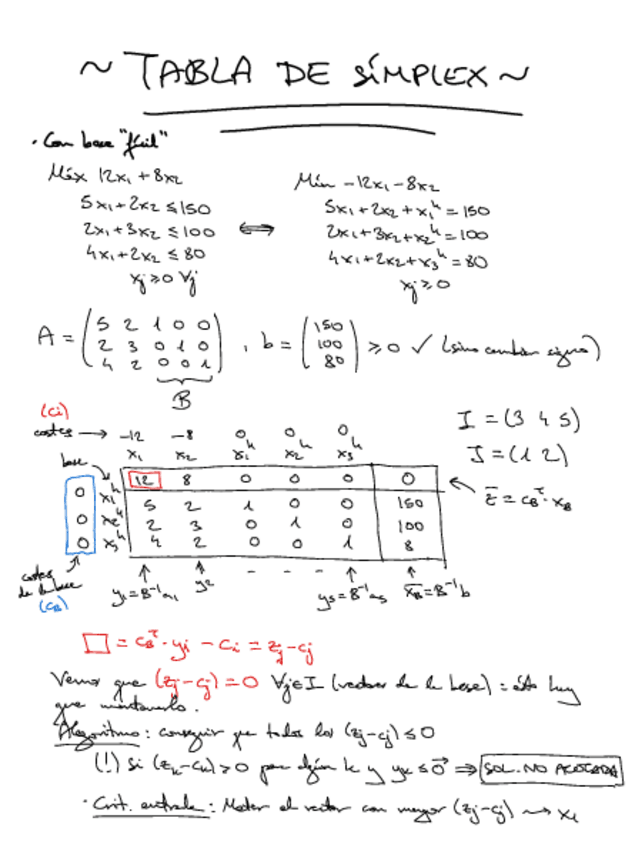 ~ TABLA DE SÍMPLEX ~
· Con base "fácil"
Máx 12x₁ + 8x₂
5x₁ + 2x₂ ≤ 150
2x₁ + 3x₂ ≤ 100
4x₁ + 2x₂ ≤ 80
xj ≥ 0 ∀j
⟺
Min -12x₁ - 8x₂
5x₁ + 2x₂ + x₁ʰ = 150
2x₁ + 3x₂ + x₂ʰ = 100
4x₁ + 2x₂ + x₃ʰ = 80
xj ≥ 0
A = (5 2 1 0 0
2 3 0 1 0
4 2 0 0 1)
B
, b = (150
100
80) ≥ 0 ✓ (sino cambiar signo)
(Ci)
costes → -12 -8 0 0 0
x₁ x₂ x₁ʰ x₂ʰ x₃ʰ
base
12 8 0 0 0 0
0 x₁ʰ 5 2 1 0 0 150
0 x₂ʰ 2 3 0 1 0 100
0 x₃ʰ 4 2 0 0 1 8
I = (3 4 5)
J = (1 2)
z̄ = c_Bᵗ · x_B
costes de la base
(C_B)
y₁ = B⁻¹a₁ y₂ - - - y₅ = B⁻¹a₅ x̄_B = B⁻¹b
□ = c_Bᵗ · yi - ci = zj - cj
Vemos que (zj - cj) = 0 ∀j∈I (vectores de la base) : esto hay
que mantenerlo.
Algoritmo : conseguir que todos los (zj - cj) ≤ 0
(!) Si (z_k - c_k) > 0 para algún k y y_k ≤ 0⃗ ⇒ SOL. NO ACOTADA
· Crit. entrada : Meter el vector con mayor (zj - cj) ⇝ x₁